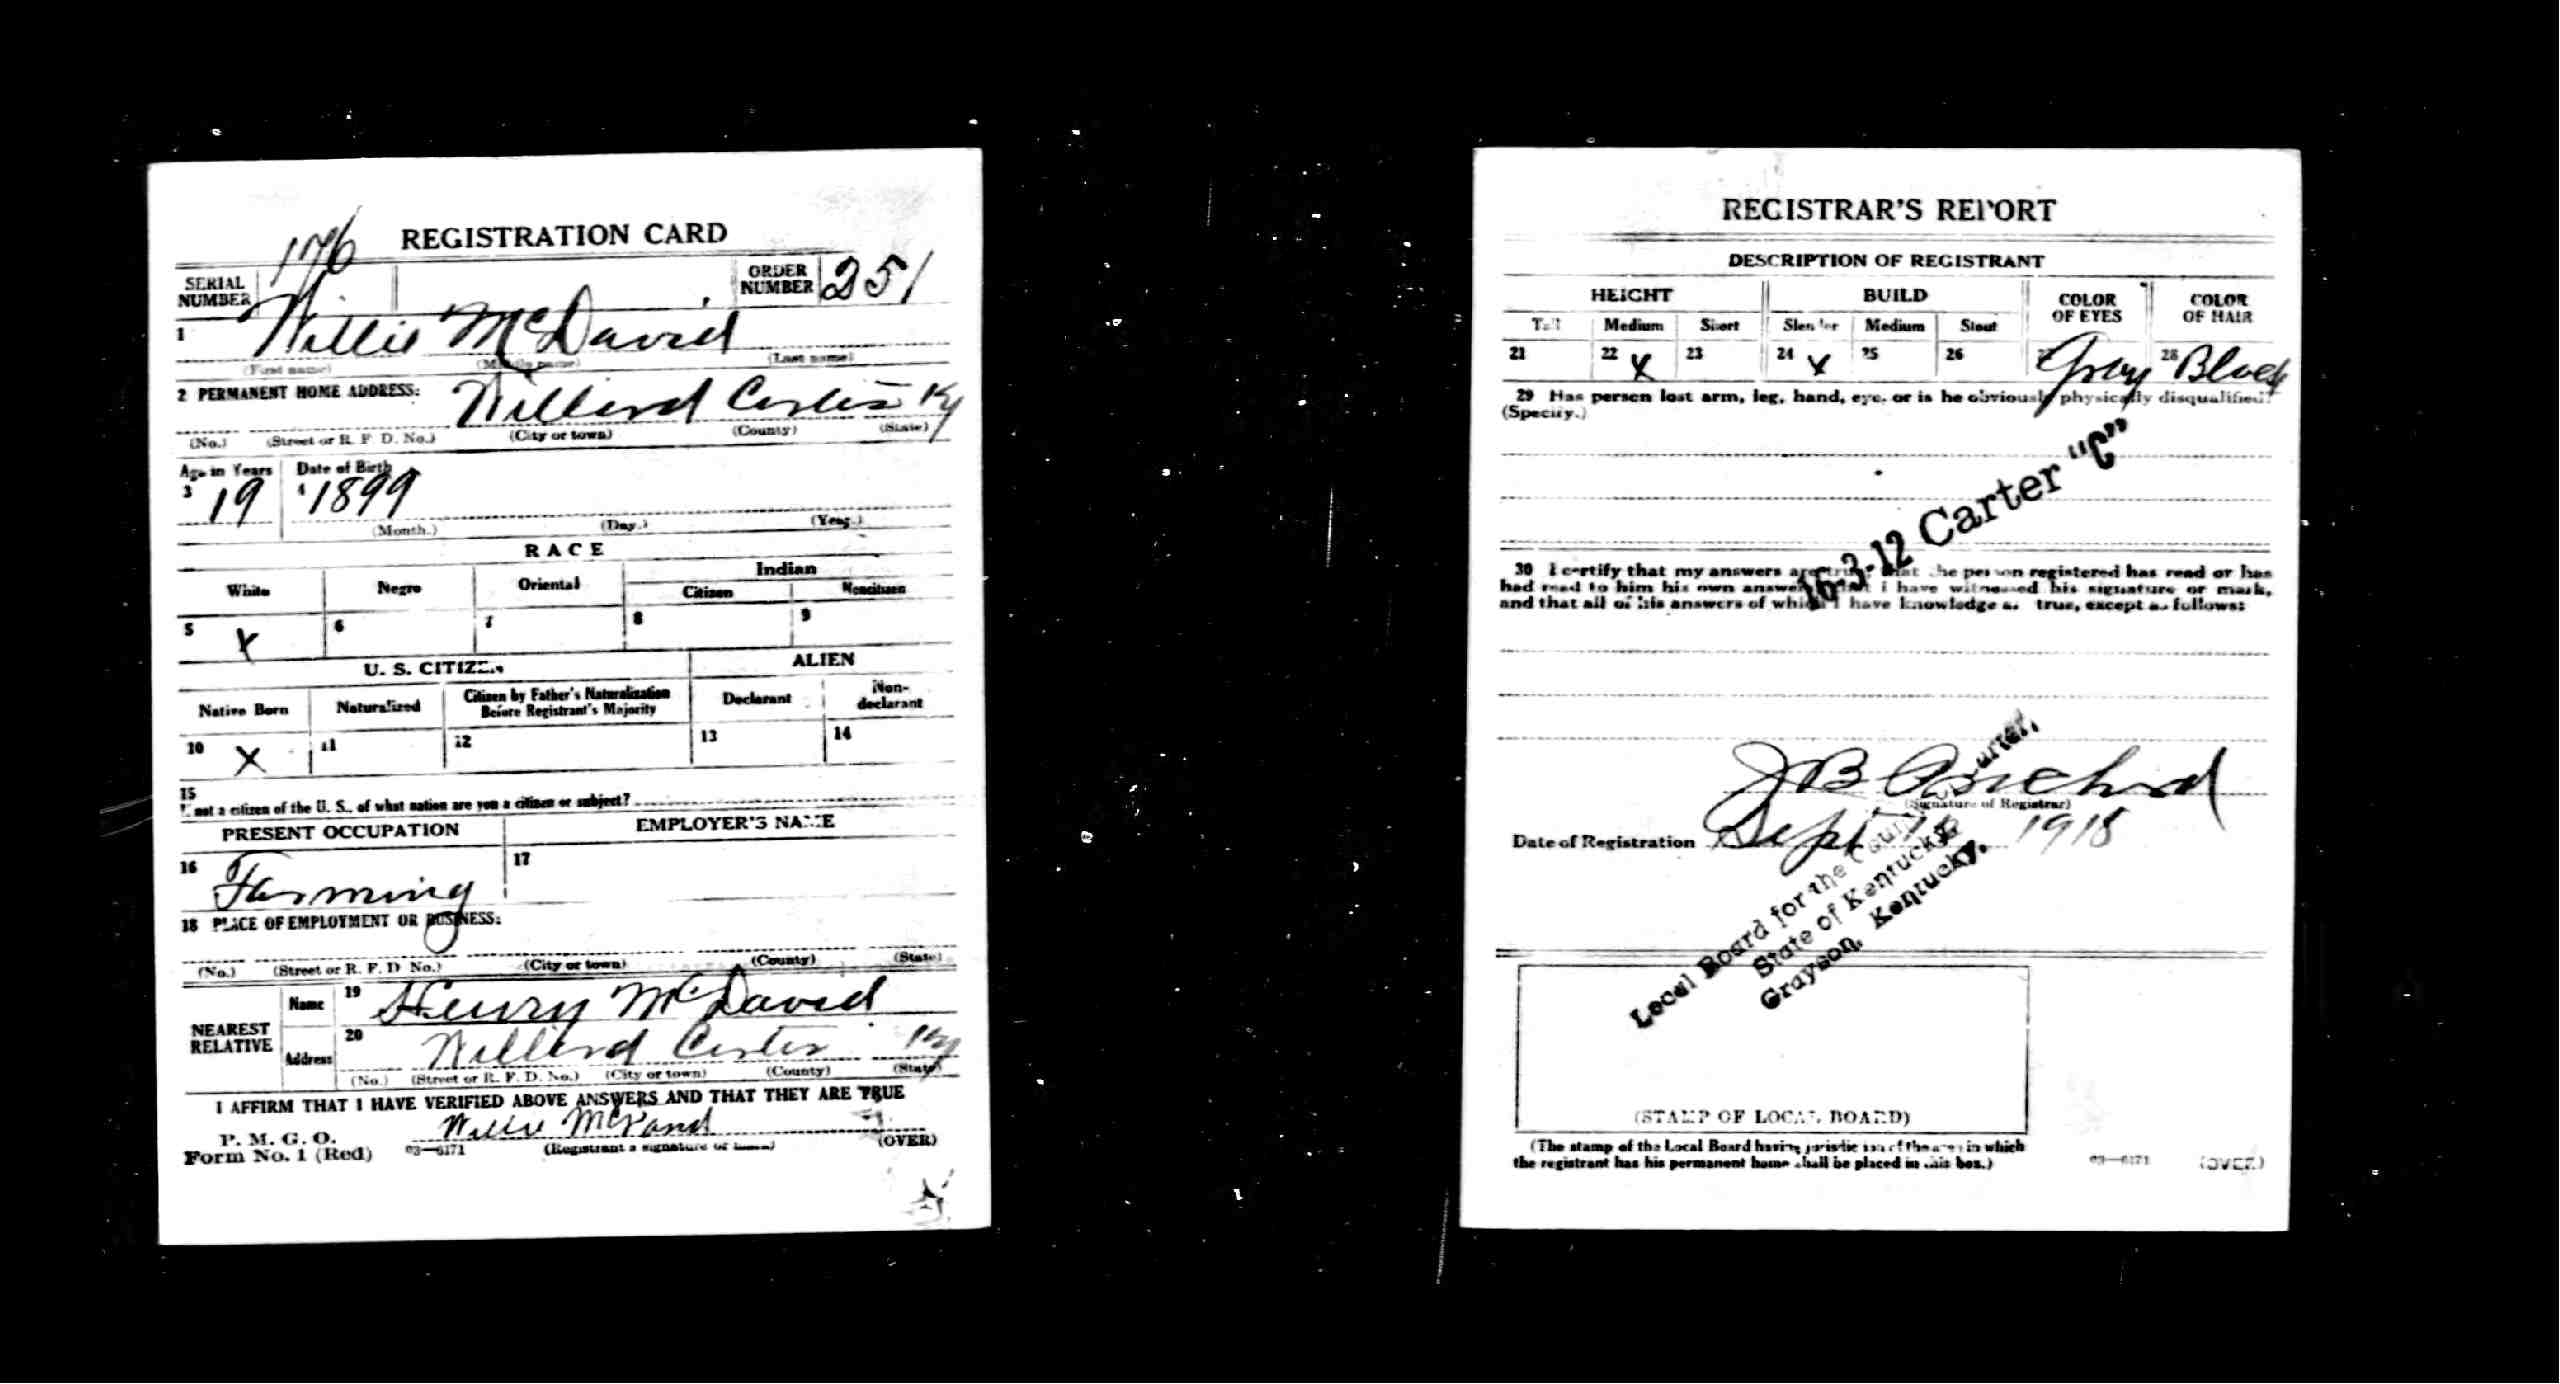 REGISTRATION CARD
SERIAL NUMBER 176 ORDER NUMBER 251
1 Willie McDavid
(First name) (Middle name) (Last name)
2 PERMANENT HOME ADDRESS: Willard Carter Ky
(No.) (Street or R. F. D. No.) (City or town) (County) (State)
Age in Years Date of Birth
3 19 4 1899
(Month.) (Day.) (Year.)
RACE
White Negro Oriental Indian
Citizen Noncitizen
5 X 6 7 8 9
U. S. CITIZEN ALIEN
Native Born Naturalized Citizen by Father's Naturalization Before Registrant's Majority Declarant Non-declarant
10 X 11 12 13 14
15
If not a citizen of the U. S., of what nation are you a citizen or subject?
PRESENT OCCUPATION EMPLOYER'S NAME
16 Farming 17
18 PLACE OF EMPLOYMENT OR BUSINESS:
(No.) (Street or R. F. D. No.) (City or town) (County) (State)
NEAREST RELATIVE
Name 19 Henry McDavid
Address 20 Willard Carter Ky
(No.) (Street or R. F. D. No.) (City or town) (County) (State)
I AFFIRM THAT I HAVE VERIFIED ABOVE ANSWERS AND THAT THEY ARE TRUE
Willie McDavid
P. M. G. O.
Form No. 1 (Red) 03—6171 (Registrant's signature or mark) (OVER)
REGISTRAR'S REPORT
DESCRIPTION OF REGISTRANT
HEIGHT BUILD COLOR OF EYES COLOR OF HAIR
Tall Medium Short Slender Medium Stout
21 22 X 23 24 X 25 26 27 Gray 28 Black
29 Has person lost arm, leg, hand, eye, or is he obviously physically disqualified?
(Specify.)
16-3-12 Carter "C"
30 I certify that my answers are true, that the person registered has read or has
had read to him his own answers, that I have witnessed his signature or mark,
and that all of his answers of which I have knowledge are true, except as follows:
J B
(Signature of Registrar)
Date of Registration Sept 1918
Local Board for the County of Carter,
State of Kentucky,
Grayson, Kentucky.
(STAMP OF LOCAL BOARD)
(The stamp of the Local Board having jurisdiction of the area in which
the registrant has his permanent home shall be placed in this box.)
03—6171 (OVER)